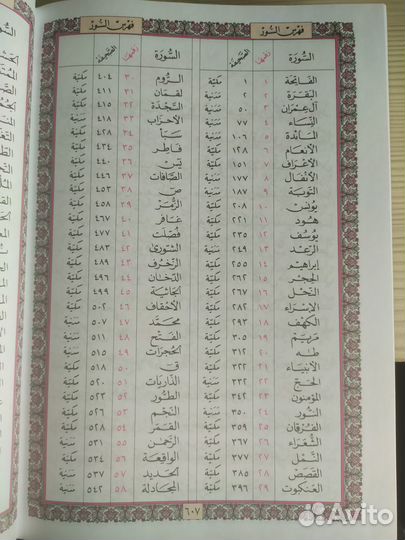 فهرس السور
السورة رقمها الصفحة
الفاتحة ١ ١ مكية
البقرة ٢ ٢ مدنية
آل عمران ٣ ٥٠ مدنية
النساء ٤ ٧٧ مدنية
المائدة ٥ ١٠٦ مدنية
الأنعام ٦ ١٢٨ مكية
الأعراف ٧ ١٥١ مكية
الأنفال ٨ ١٧٧ مدنية
التوبة ٩ ١٨٧ مدنية
يونس ١٠ ٢٠٨ مكية
هود ١١ ٢٢١ مكية
يوسف ١٢ ٢٣٥ مكية
الرعد ١٣ ٢٤٩ مدنية
إبراهيم ١٤ ٢٥٥ مكية
الحجر ١٥ ٢٦٢ مكية
النحل ١٦ ٢٦٧ مكية
الإسراء ١٧ ٢٨٢ مكية
الكهف ١٨ ٢٩٣ مكية
مريم ١٩ ٣٠٥ مكية
طه ٢٠ ٣١٢ مكية
الأنبياء ٢١ ٣٢٢ مكية
الحج ٢٢ ٣٣٢ مدنية
المؤمنون ٢٣ ٣٤٢ مكية
النور ٢٤ ٣٥٠ مدنية
الفرقان ٢٥ ٣٥٩ مكية
الشعراء ٢٦ ٣٦٧ مكية
النمل ٢٧ ٣٧٧ مكية
القصص ٢٨ ٣٨٥ مكية
العنكبوت ٢٩ ٣٩٦ مكية
فهرس السور
السورة رقمها الصفحة
الروم ٣٠ ٤٠٤ مكية
لقمان ٣١ ٤١١ مكية
السجدة ٣٢ ٤١٥ مكية
الأحزاب ٣٣ ٤١٨ مدنية
سبأ ٣٤ ٤٢٨ مكية
فاطر ٣٥ ٤٣٤ مكية
يس ٣٦ ٤٤٠ مكية
الصافات ٣٧ ٤٤٦ مكية
ص ٣٨ ٤٥٣ مكية
الزمر ٣٩ ٤٥٨ مكية
غافر ٤٠ ٤٦٧ مكية
فصلت ٤١ ٤٧٧ مكية
الشورى ٤٢ ٤٨٣ مكية
الزخرف ٤٣ ٤٨٩ مكية
الدخان ٤٤ ٤٩٦ مكية
الجاثية ٤٥ ٤٩٩ مكية
الأحقاف ٤٦ ٥٠٢ مكية
محمد ٤٧ ٥٠٧ مدنية
الفتح ٤٨ ٥١١ مدنية
الحجرات ٤٩ ٥١٥ مدنية
ق ٥٠ ٥١٨ مكية
الذاريات ٥١ ٥٢٠ مكية
الطور ٥٢ ٥٢٣ مكية
النجم ٥٣ ٥٢٦ مكية
القمر ٥٤ ٥٢٨ مكية
الرحمن ٥٥ ٥٣١ مدنية
الواقعة ٥٦ ٥٣٤ مكية
الحديد ٥٧ ٥٣٧ مدنية
المجادلة ٥٨ ٥٤٢ مدنية
٦٠٧
Avito